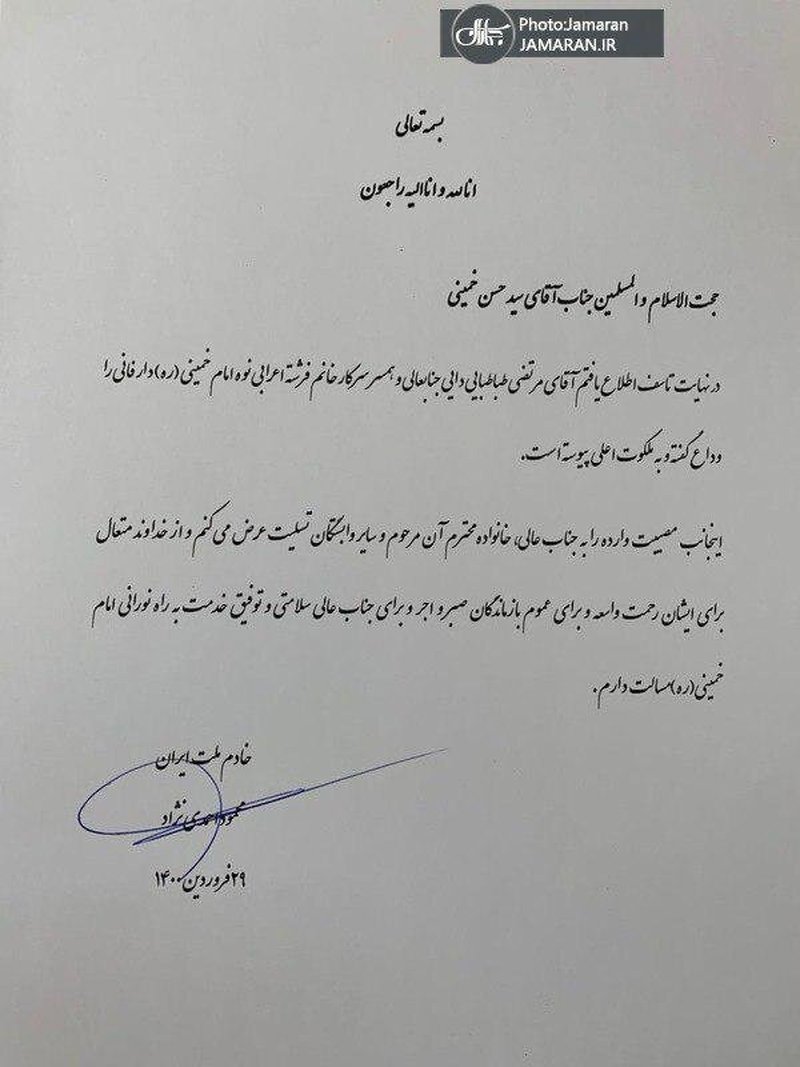 Photo:Jamaran
JAMARAN.IR
بسمه تعالی
انا لله و انا الیه راجعون
حجت الاسلام و المسلمین جناب آقای سید حسن خمینی
در نهایت تاسف اطلاع یافتم آقای مرتضی طباطبایی دایی جنابعالی و همسر سرکار خانم فرشته اعرابی نوه امام خمینی (ره) دار فانی را
وداع گفته و به ملکوت اعلی پیوسته است.
اینجانب مصیبت وارده را به جناب عالی، خانواده محترم آن مرحوم و سایر وابستگان تسلیت عرض می کنم و از خداوند متعال
برای ایشان رحمت واسعه و برای عموم بازماندگان صبر و اجر و برای جناب عالی سلامتی و توفیق خدمت به راه نورانی امام
خمینی (ره) مسالت دارم.
خادم ملت ایران
محمود احمدی نژاد
۲۹ فروردین ۱۴۰۰